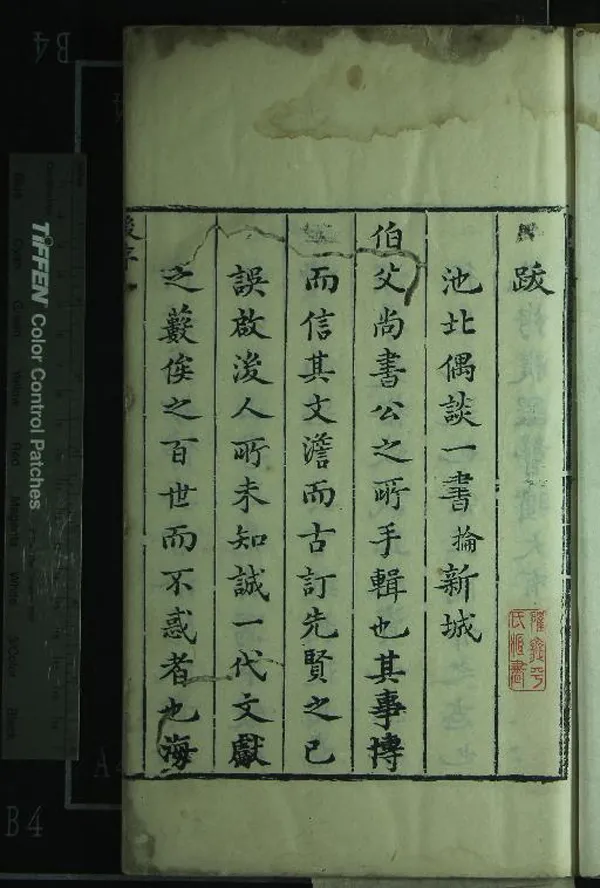 跋
池北偶談一書掄新城
伯父尚書公之所手輯也其事博
而信其文澹而古訂先賢之已
誤啟後人所未知誠一代文獻
之藪俟之百世而不惑者也海
TIFFEN Color Control Patches
B4
B4